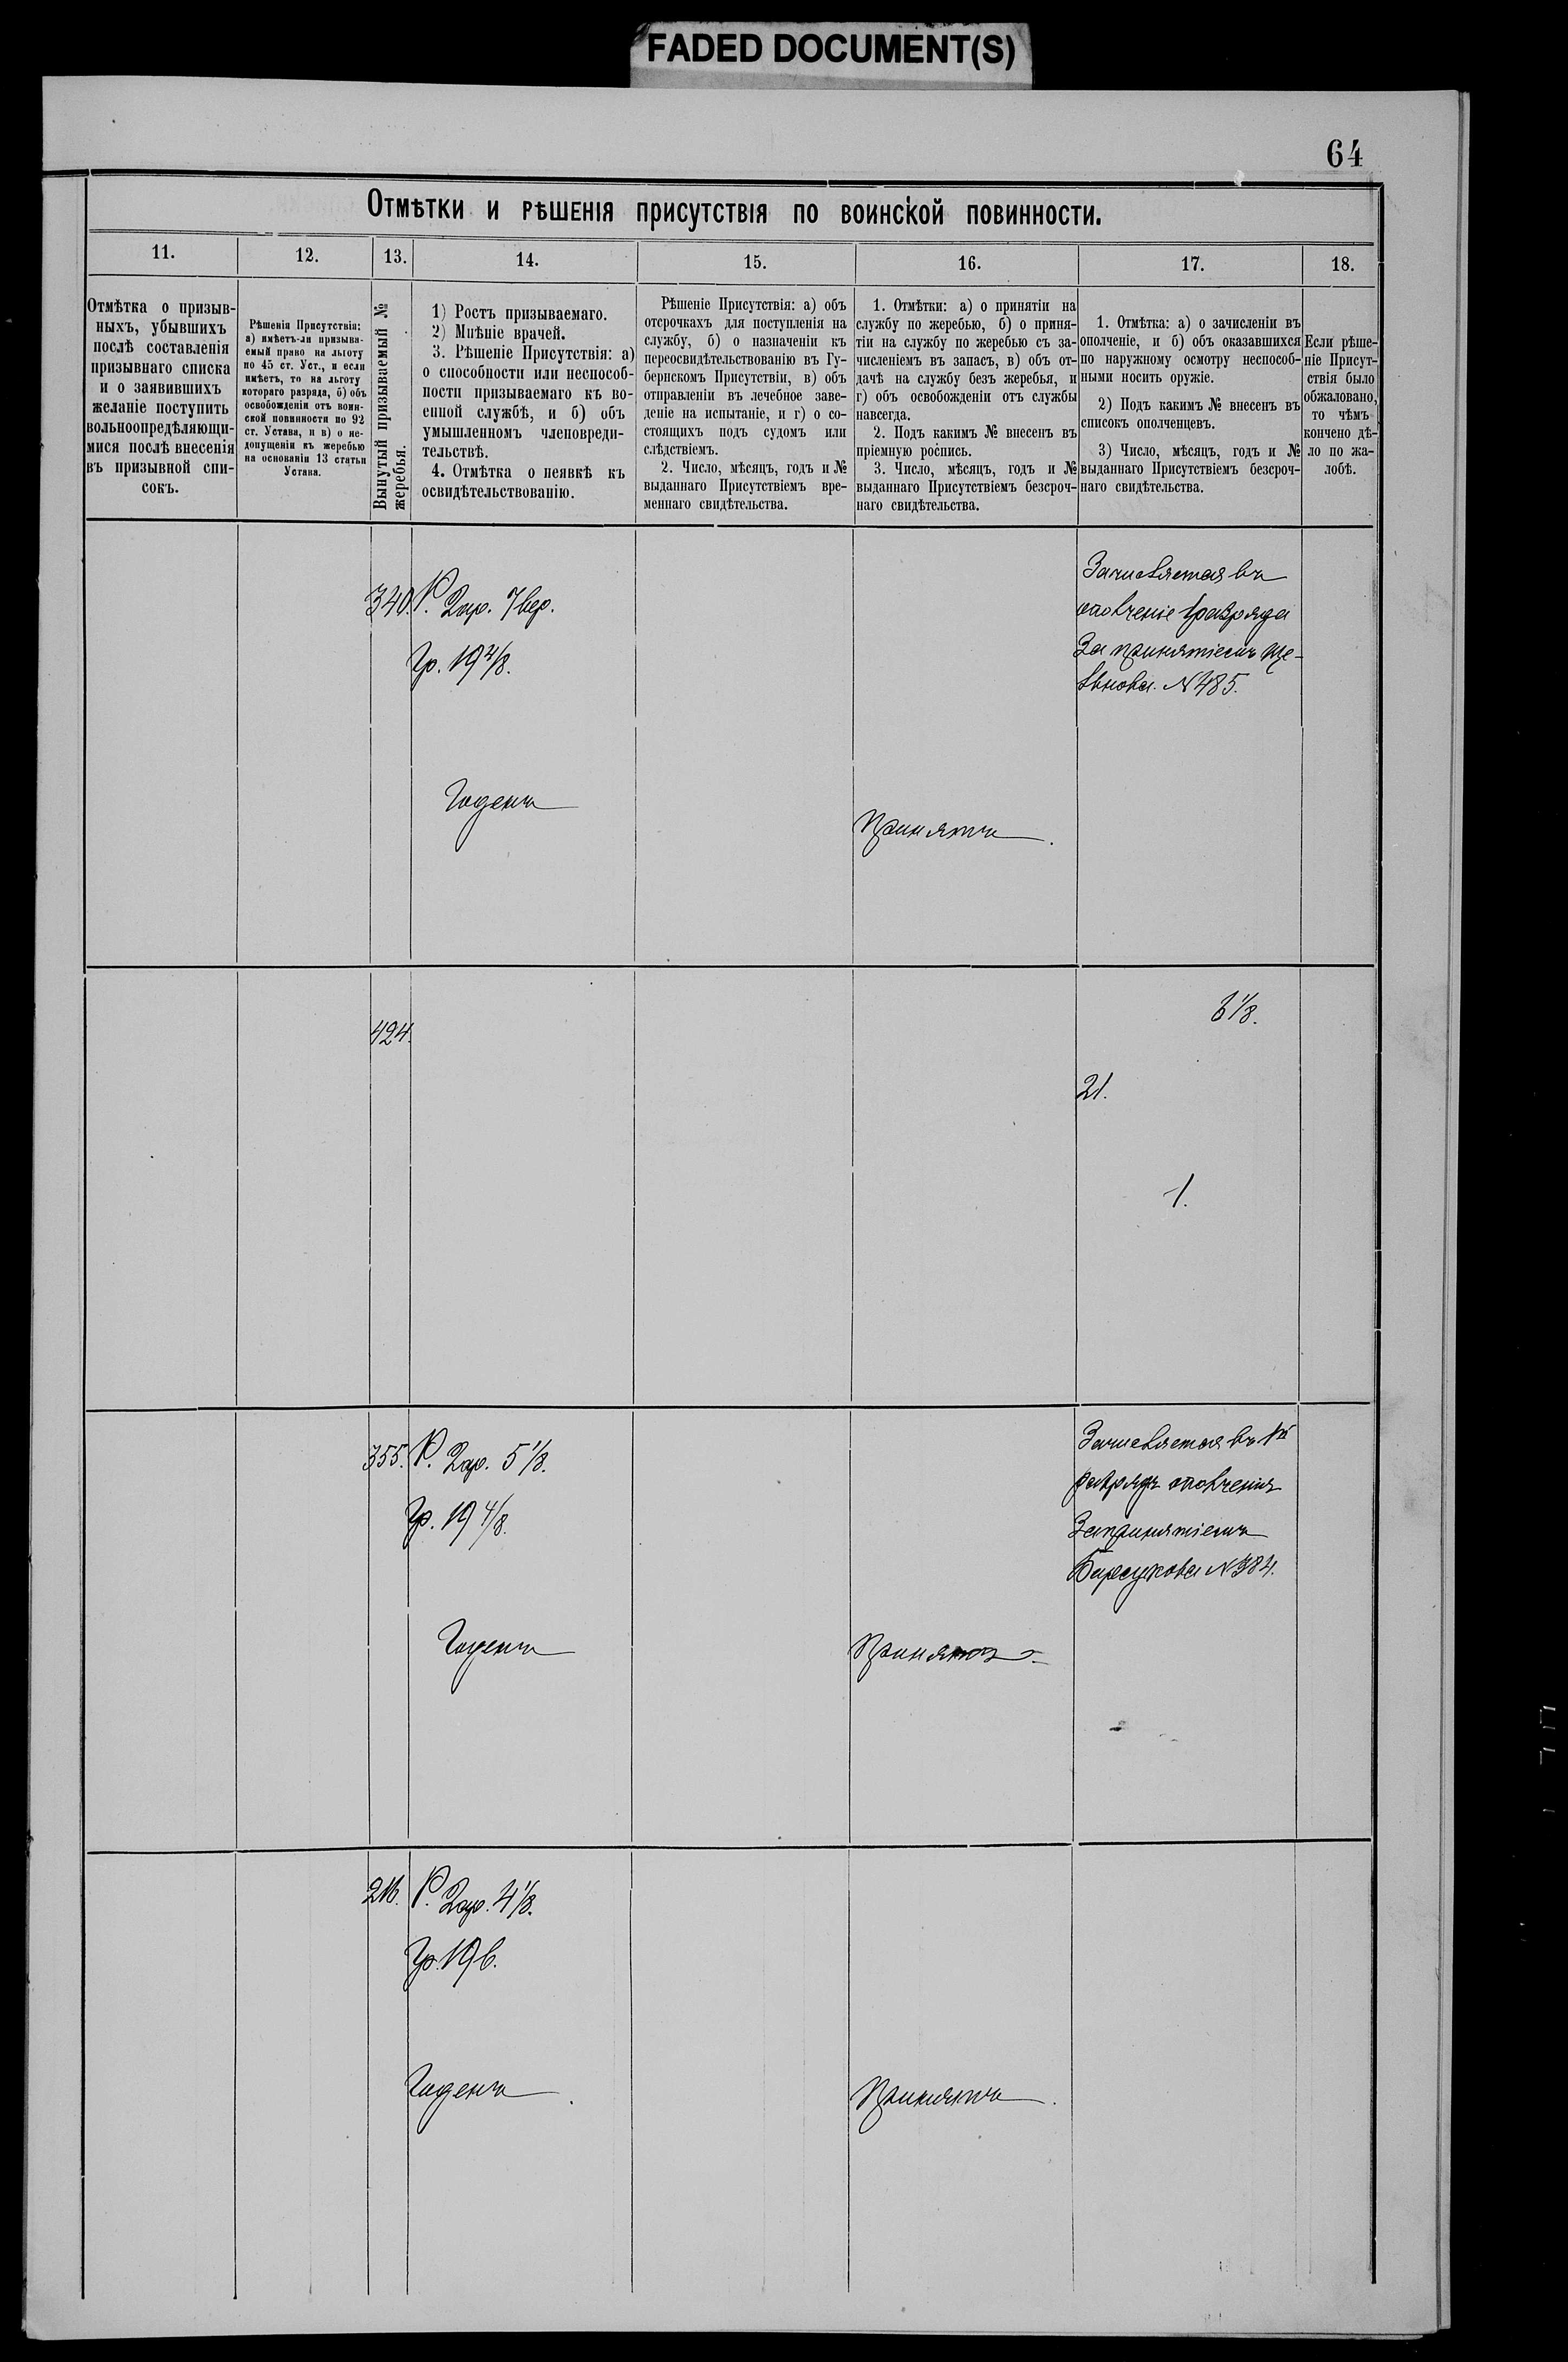 FADED DOCUMENT(S)
64
Отмѣтки и рѣшенія присутствія по воинской повинности.
11. 12. 13. 14. 15. 16. 17. 18.
Отмѣтка о призыв-
ныхъ, убывшихъ
послѣ составленія
призывнаго списка
и о заявившихъ
желаніе поступить
вольноопредѣляющи-
мися послѣ внесенія
въ призывной спи-
сокъ.
Рѣшенія Присутствія:
а) имѣетъ-ли призыва-
емый право на льготу
по 45 ст. Уст., и если
имѣетъ, то на льготу
котораго разряда, б) объ
освобожденіи отъ воин-
ской повинности по 92
ст. Устава, и в) о не-
допущеніи къ жеребью
на основаніи 13 статьи
Устава.
Вынутый призываемый №
жеребья.
1) Ростъ призываемаго.
2) Мнѣніе врачей.
3. Рѣшеніе Присутствія: а)
о способности или неспособ-
ности призываемаго къ во-
енной службѣ, и б) объ
умышленномъ членовреди-
тельствѣ.
4. Отмѣтка о неявкѣ къ
освидѣтельствованію.
Рѣшеніе Присутствія: а) объ
отсрочкахъ для поступленія на
службу, б) о назначеніи къ
переосвидѣтельствованію въ Гу-
бернскомъ Присутствіи, в) объ
отправленіи въ лечебное заве-
деніе на испытаніе, и г) о со-
стоящихъ подъ судомъ или
слѣдствіемъ.
2. Число, мѣсяцъ, годъ и №
выданнаго Присутствіемъ вре-
меннаго свидѣтельства.
1. Отмѣтки: а) о принятіи на
службу по жеребью, б) о приня-
тіи на службу по жеребью съ за-
численіемъ въ запасъ, в) объ от-
дачѣ на службу безъ жеребья, и
г) объ освобожденіи отъ службы
навсегда.
2. Подъ какимъ № внесенъ въ
пріемную роспись.
3. Число, мѣсяцъ, годъ и №
выданнаго Присутствіемъ безсроч-
наго свидѣтельства.
1. Отмѣтка: а) о зачисленіи въ
ополченіе, и б) объ оказавшихся
по наружному осмотру неспособ-
ными носить оружіе.
2) Подъ какимъ № внесенъ въ
списокъ ополченцевъ.
3) Число, мѣсяцъ, годъ и №
выданнаго Присутствіемъ безсроч-
наго свидѣтельства.
Если рѣше-
ніе Присут-
ствія было
обжаловано,
то чѣмъ
кончено дѣ-
ло по жа-
лобѣ.
340. Р. 2 ар. 7 вер.
Гр. 19 4/8.
Годенъ
Принятъ.
Зачисляется въ
ополченіе 1 разряда
За принятіемъ
№ 485.
424.
6 1/8.
21.
1.
355. Р. 2 ар. 5 1/8.
Гр. 19 4/8.
Годенъ
Принятъ
Зачисляется въ 1й
разрядъ ополченія
За принятіемъ
Барсукова № 384.
216. Р. 2 ар. 4 1/8.
Гр. 19 в.
Годенъ.
Принятъ.